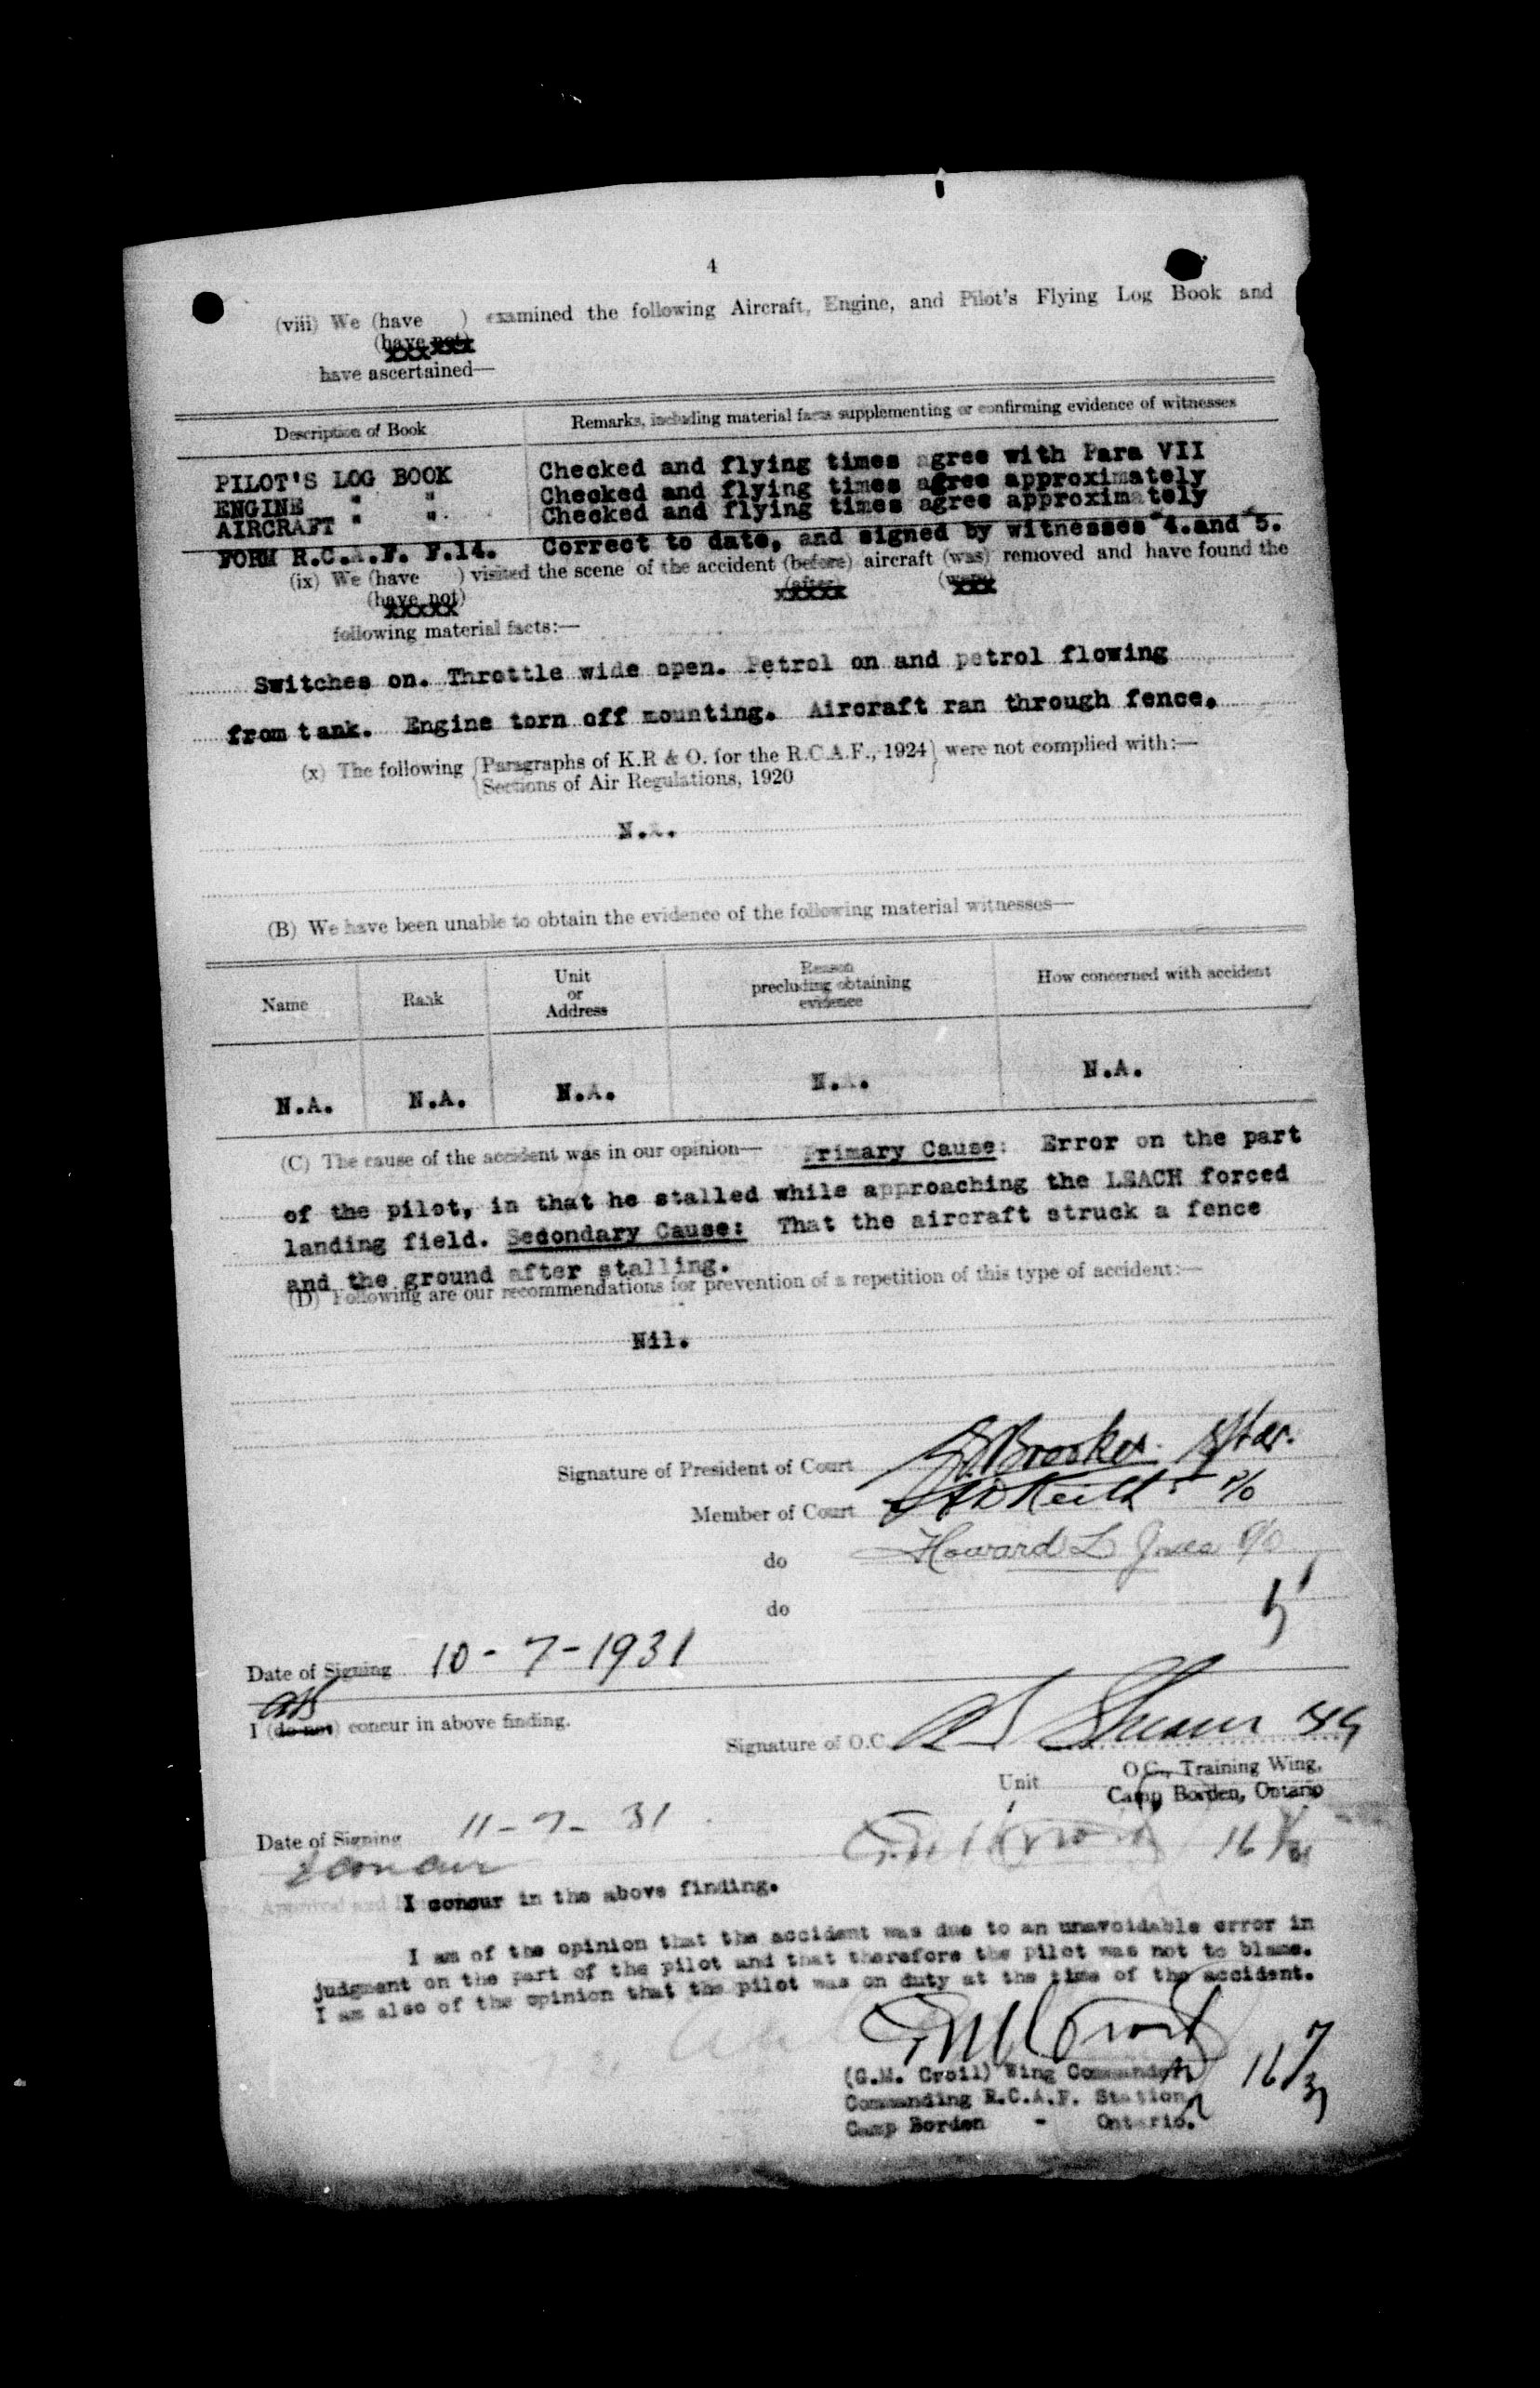 4
(viii) We (have ) examined the following Aircraft, Engine, and Pilot's Flying Log Book and
(have not)
have ascertained—
Description of Book Remarks, including material facts supplementing or confirming evidence of witnesses
PILOT'S LOG BOOK Checked and flying times agree with Para VII
ENGINE " " Checked and flying times agree approximately
AIRCRAFT " ". Checked and flying times agree approximately
FORM R.C.A.F. F.14. Correct to date, and signed by witnesses "4.and "5.
(ix) We (have ) visited the scene of the accident (before) aircraft (was) removed and have found the
(have not) (after) (were)
following material facts:—
Switches on. Throttle wide open. Petrol on and petrol flowing
from tank. Engine torn off mounting. Aircraft ran through fence.
(x) The following {Paragraphs of K.R & O. for the R.C.A.F., 1924} were not complied with:—
{Sections of Air Regulations, 1920
N.A.
(B) We have been unable to obtain the evidence of the following material witnesses—
Name Rank Unit or Address Reason precluding obtaining evidence How concerned with accident
N.A. N.A. N.A. N.A. N.A.
(C) The cause of the accident was in our opinion— Primary Cause: Error on the part
of the pilot, in that he stalled while approaching the LEACH forced
landing field. Sedondary Cause: That the aircraft struck a fence
and the ground after stalling.
(D) Following are our recommendations for prevention of a repetition of this type of accident:—
Nil.
Signature of President of Court Brookes
Member of Court Keith P/O
do Howard L P/O
do
Date of Signing 10-7-1931
I (do not) concur in above finding.
Signature of O.C.
Unit O.C., Training Wing,
Camp Borden, Ontario
Date of Signing 11-7-31
I concur 16/7/31
I concur in the above finding.
I am of the opinion that the accident was due to an unavoidable error in
judgment on the part of the pilot and that therefore the pilot was not to blame.
I am also of the opinion that the pilot was on duty at the time of the accident.
(G.M. Croil) Wing Commander, 16/7/31
Commanding R.C.A.F. Station,
Camp Borden - Ontario.